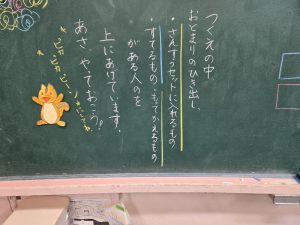 つくえの中
おとまりのひき出し
・さんすうセットに入れるもの
・すてるもの・もってかえるもの
がある人のを
上にあげています。
あさ、やっておこう!
ピカピカピーン